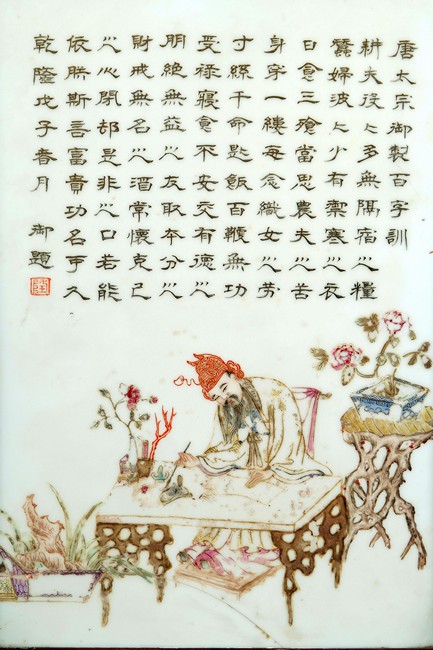 唐太宗御製百字訓
耕夫役々多無隔宿之糧
蠶婦波々少有禦寒之衣
日食三飧當思農夫之苦
身穿一縷每念織女之劳
寸絲千命匙飯百鞭無功
受禄寢食不安交有德之
朋絶無益之友取本分之
財戒無名之酒常懷克己
之心閉却是非之口若能
依朕斯言富貴功名可久
乾隆戊子春月 御題